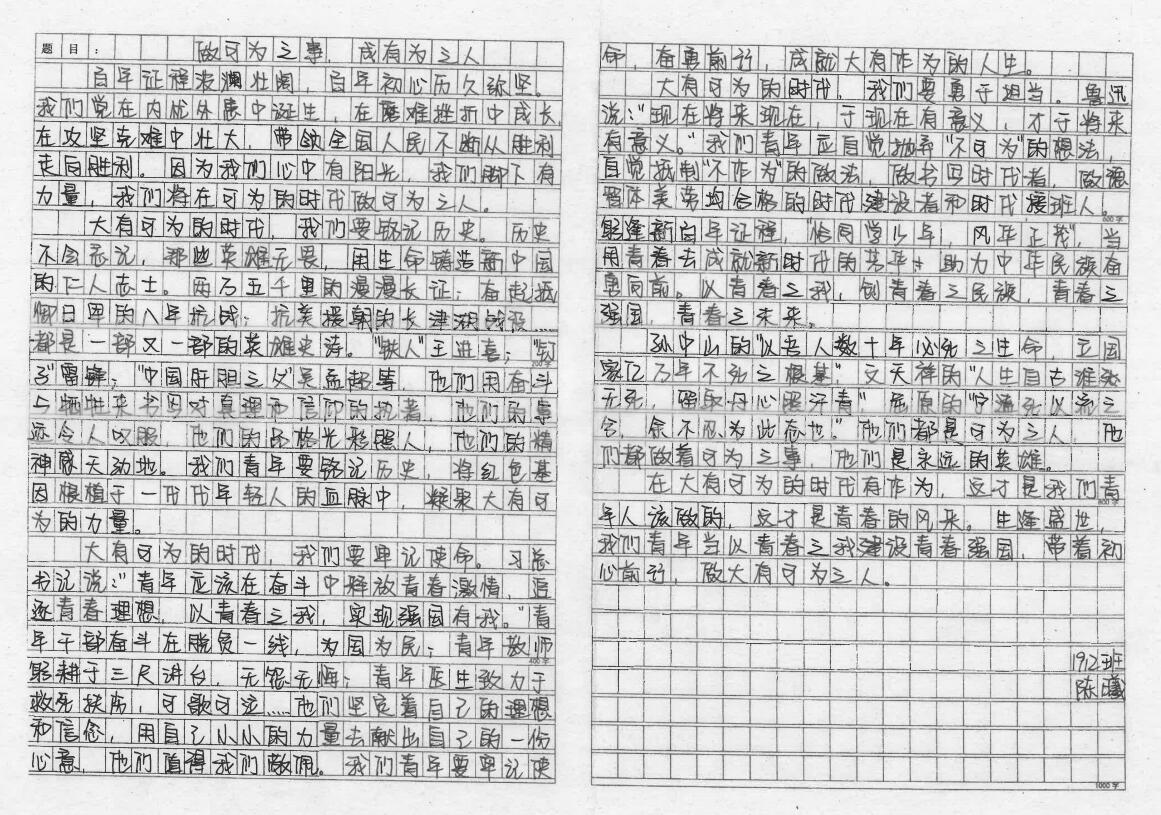 题目：做可为之事，成有为之人
百年征程波澜壮阔，百年初心历久弥坚。
我们党在内忧外患中诞生，在磨难挫折中成长，
在攻坚克难中壮大，带领全国人民不断从胜利
走向胜利。因为我们心中有阳光，我们脚下有
力量，我们将在可为的时代做可为之人。
大有可为的时代，我们要铭记历史。历史
不会忘记，那些英雄无畏，用生命铸造新中国
的仁人志士。两万五千里的漫漫长征；奋起抵
御日军的八年抗战；抗美援朝的长津湖战役……
都是一部又一部的英雄史诗。"铁人"王进喜；"钉
子"雷锋；"中国肝胆之父"吴孟超等，他们用奋斗
与牺牲来书写对真理和信仰的执着，他们的事
迹令人叹服，他们的品格光彩照人，他们的精
神感天动地。我们青年要铭记历史，将红色基
因根植于一代代年轻人的血脉中，凝聚大有可
为的力量。
大有可为的时代，我们要牢记使命。习总
书记说："青年应该在奋斗中释放青春激情，追
逐青春理想，以青春之我，实现强国有我。"青
年干部奋斗在脱贫一线，为国为民；青年教师
躬耕于三尺讲台，无怨无悔；青年医生致力于
救死扶伤，可歌可泣……他们坚定着自己的理想
和信念，用自己小小的力量去献出自己的一份
心意，他们值得我们敬佩。我们青年要牢记使
400字
命，奋勇前行，成就大有作为的人生。
大有可为的时代，我们要勇于担当。鲁迅
说："现在将来现在，于现在有意义，才于将来
有意义。"我们青年应自觉抛弃"不可为"的想法，
自觉抵制"不作为"的做法，做书写时代者，做德
智体美劳均合格的时代建设者和时代接班人。
600字
躬逢新百年征程，"恰同学少年，风华正茂"，当
用青春去成就新时代的芳华，助力中华民族奋
勇向前。以青春之我，创青春之民族，青春之
强国，青春之未来。
孙中山的"以吾人数十年必死之生命，立国
家亿万年不死之根基"，文天祥的"人生自古谁
无死，留取丹心照汗青"，屈原的"宁溘死以流
，余不忍为此态也。"他们都是可为之人，他
们都做着可为之事，他们是永远的英雄。
在大有可为的时代有作为，这才是我们青
800字
年人该做的，这才是青春的风采。生逢盛世，
我们青年当以青春之我建设青春强国，带着初
心前行，做大有可为之人。
1912班
陈曦
1000字